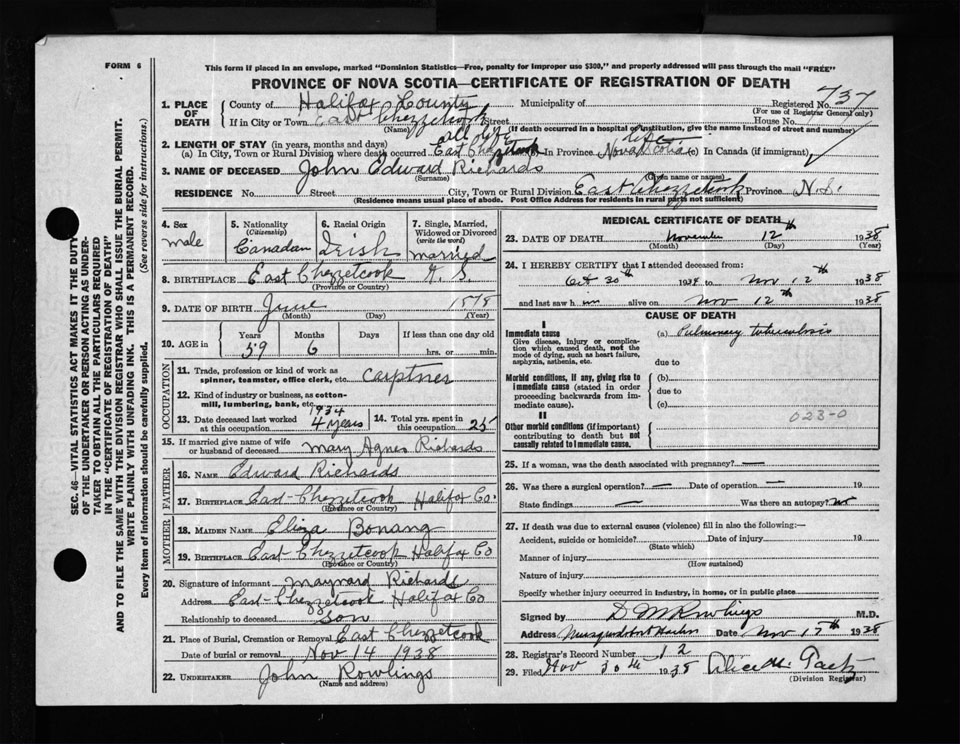 FORM 6
This form if placed in an envelope, marked "Dominion Statistics—Free, penalty for improper use $300," and properly addressed will pass through the mail "FREE"
PROVINCE OF NOVA SCOTIA—CERTIFICATE OF REGISTRATION OF DEATH
1. PLACE OF DEATH
County of Halifax County Municipality of Registered No. 737
(For use of Registrar General only)
If in City or Town East Chezzetcook Street House No.
(Name) (If death occurred in a hospital or institution, give the name instead of street and number)
2. LENGTH OF STAY (in years, months and days) all life life
(a) In City, Town or Rural Division where death occurred East Chezzetcook (b) In Province Nova Scotia (c) In Canada (if immigrant)
3. NAME OF DECEASED John Edward Richards
(Surname) (Given name or names)
RESIDENCE No. Street City, Town or Rural Division East Chezzetcook Province N.S.
(Residence means usual place of abode. Post Office Address for residents in rural parts not sufficient)
4. Sex male
5. Nationality (Citizenship) Canadian
6. Racial Origin Irish
7. Single, Married, Widowed or Divorced (write the word) married
8. BIRTHPLACE East Chezzetcook N. S.
(Province or Country)
9. DATE OF BIRTH June 1878
(Month) (Day) (Year)
10. AGE in Years 59 Months 6 Days If less than one day old hrs. or min.
OCCUPATION
11. Trade, profession or kind of work as spinner, teamster, office clerk, etc. carptner
12. Kind of industry or business, as cotton-mill, lumbering, bank, etc.
13. Date deceased last worked at this occupation 1934 4 years
14. Total yrs. spent in this occupation 25
15. If married give name of wife or husband of deceased Mary Agnes Richards
FATHER
16. NAME Edward Richards
17. BIRTHPLACE East-Chezzetcook Halifax Co.
(Province or Country)
MOTHER
18. MAIDEN NAME Eliza Bonang
19. BIRTHPLACE East Chezzetcook Halifax Co
(Province or Country)
20. Signature of informant Maynard Richards
Address East-Chezzetcook Halifax Co
Relationship to deceased son
21. Place of Burial, Cremation or Removal East Chezzetcook
Date of burial or removal Nov 14 1938
22. UNDERTAKER John Rowlings
(Name and address)
MEDICAL CERTIFICATE OF DEATH
23. DATE OF DEATH November 12th 1938
(Month) (Day) (Year)
24. I HEREBY CERTIFY that I attended deceased from:
Oct 30th 1938 to Nov 12th 1938
and last saw him alive on Nov 12th 1938
CAUSE OF DEATH
I
Immediate cause
Give disease, injury or complication which caused death, not the mode of dying, such as heart failure, asphyxia, asthenia, etc.
(a) Pulmonary tuberculosis
due to
Morbid conditions, if any, giving rise to immediate cause (stated in order proceeding backwards from immediate cause).
(b)
due to
(c)
II
023-0
Other morbid conditions (if important) contributing to death but not causally related to immediate cause.
25. If a woman, was the death associated with pregnancy? —
26. Was there a surgical operation? — Date of operation — 19
State findings — Was there an autopsy? no
27. If death was due to external causes (violence) fill in also the following:—
Accident, suicide or homicide? Date of injury 19
(State which)
Manner of injury
(How sustained)
Nature of injury
Specify whether injury occurred in industry, in home, or in public place
Signed by D M Rowlings M.D.
Address Musquodoboit Harbor Date Nov 17th 1938
28. Registrar's Record Number 12
29. Filed Nov 30th 1938
(Division Registrar)
SEC. 46—VITAL STATISTICS ACT MAKES IT THE DUTY
OF THE UNDERTAKER OR PERSON ACTING AS UNDER-
TAKER TO OBTAIN ALL THE PARTICULARS REQUIRED
IN THE "CERTIFICATE OF REGISTRATION OF DEATH"
AND TO FILE THE SAME WITH THE DIVISION REGISTRAR WHO SHALL ISSUE THE BURIAL PERMIT.
WRITE PLAINLY WITH UNFADING INK. THIS IS A PERMANENT RECORD.
Every item of information should be carefully supplied. (See reverse side for instructions.)